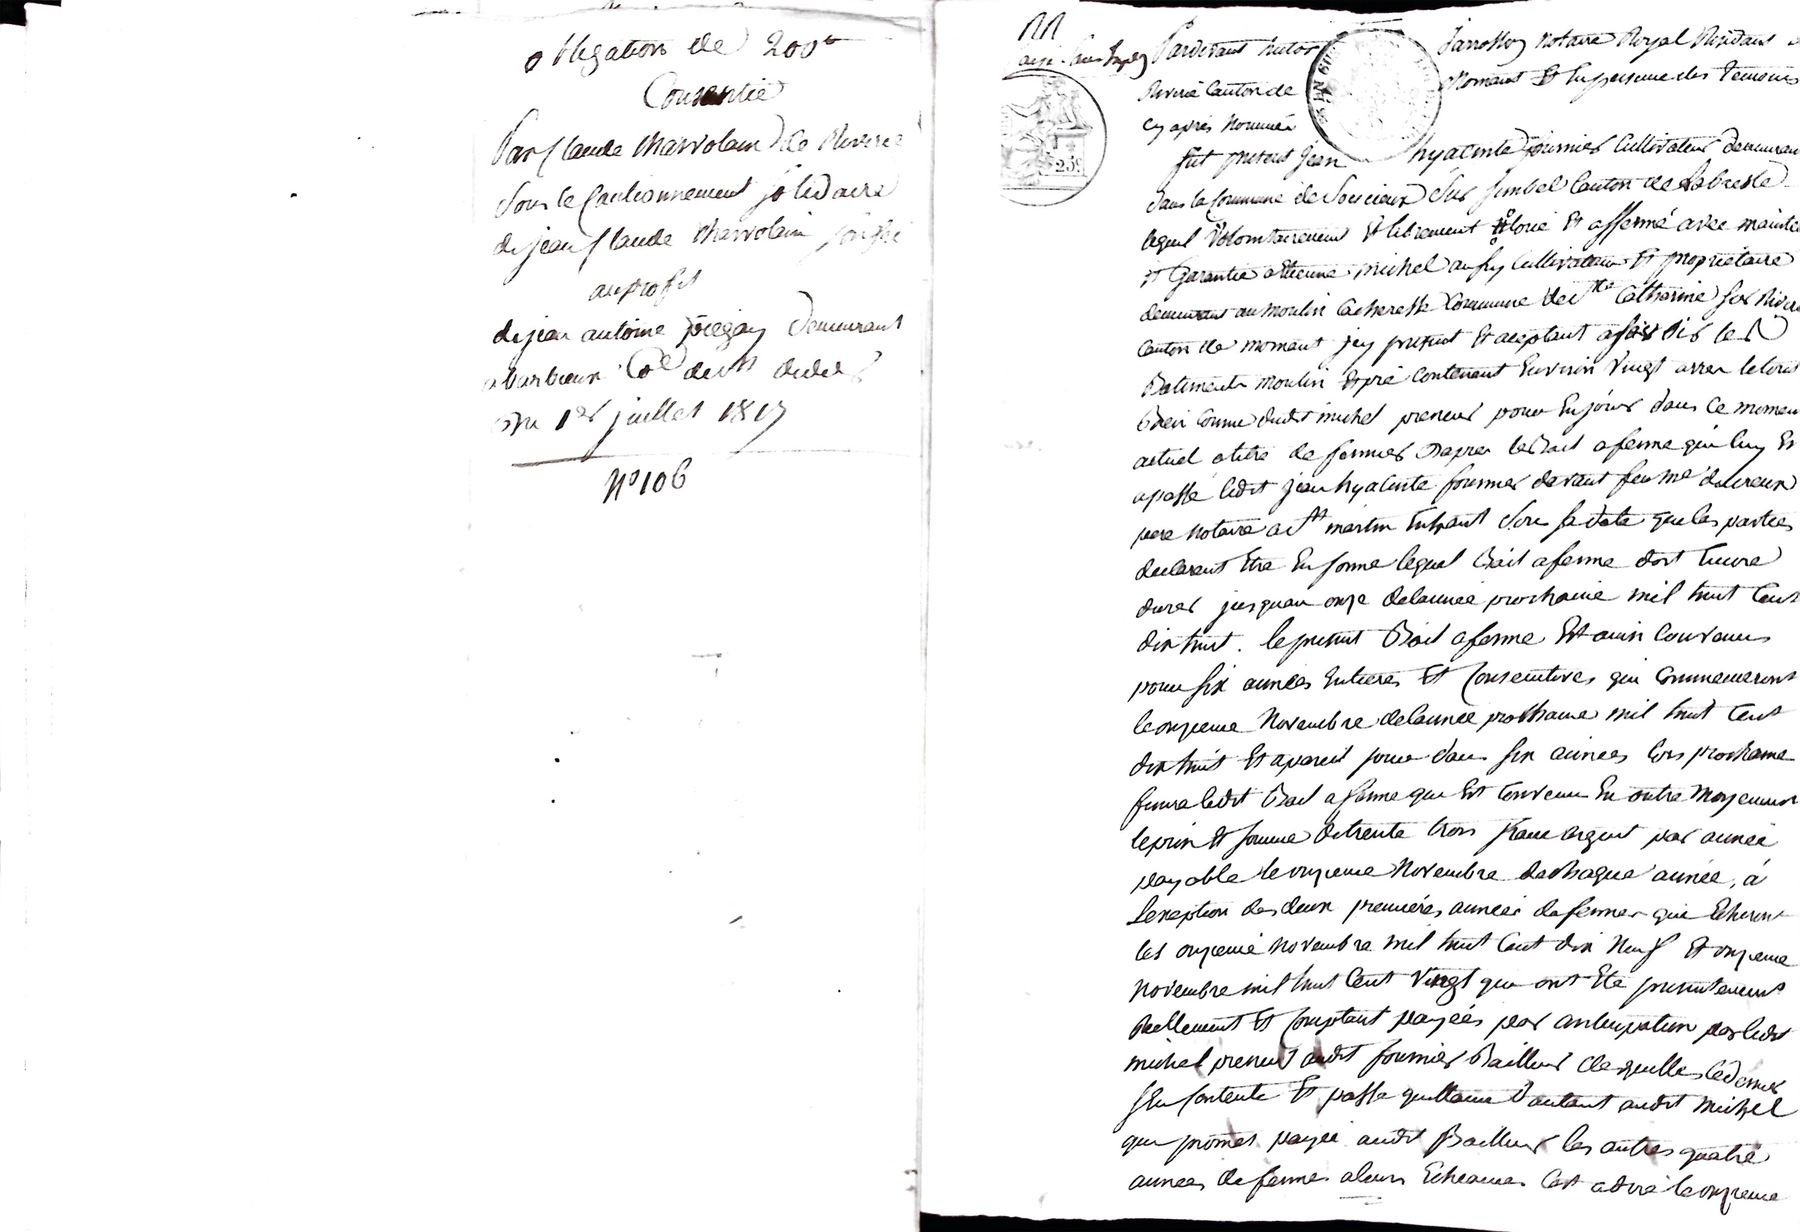 obligation de 200#
Consentie
Par Claude charvolain de Riverie
sous le Cautionnement solidaire
de jean Claude charvolain son fils
au profit
de jean antoine demeurant
a barbieux Cne de st didier
Du 1er juillet 1817
N° 106
Pardevant notaire Royal Résidant a
Riverie Canton de Mornant Et En presence des temoins
Cy après Nommés
fut présent jean hyacinte fournier Cultivateur demeurant
dans la Commune de Soucieux Canton de Labresle
lequel Volontairement Et librement loué Et affermé avec mainte
Et Garantie a Etienne michel Cultivateur Et propriétaire
demeurant au moulin Commune de Ste Catherine sur Riverie
Canton de mornant icy présent Et aceptant
Batiments moulin Et pré Contenant Environ Vingt arres le tout
Bien Connu dudit michel preneur pour En jouir dans ce moment
actuel a titre de fermier Dapres le Bail a ferme qui luy En
a passé ledit jean hyacinte fournier devant feu me ducreux
pere notaire a St martin Enhaut sous sa date que les parties
declarent Etre En forme lequel Bail a ferme doit Encore
durer jusquau onze delannée prochaine mil huit Cent
dix huit. le present Bail a ferme Est ainsi Convenu
pour six années Entieres Et Consecutives qui Commenceront
le onzieme Novembre delannée prochaine mil huit Cent
dix huit Et apareil jour dans six années lors prochaine
finira ledit Bail a ferme qui Est Convenu En outre Moyennant
le prix Et somme detrente trois franc argent par année
payable le onzieme Novembre dechaque année, á
Lexeption des deux premières années deferme qui Echeront
les onzieme novembre mil huit Cent dix Neuf Et onzieme
novembre mil huit Cent Vingt qui ont Eté presentement
Réellement Et Comptant payées par anticipation par ledit
michel preneur audit fournier Bailleur desquelles cedernier
sEn Contente Et passe quittance dautant audit Michel
qui promet payer audit Bailleur les autres quatre
années de ferme aleurs Echeances Cest adire le onzieme